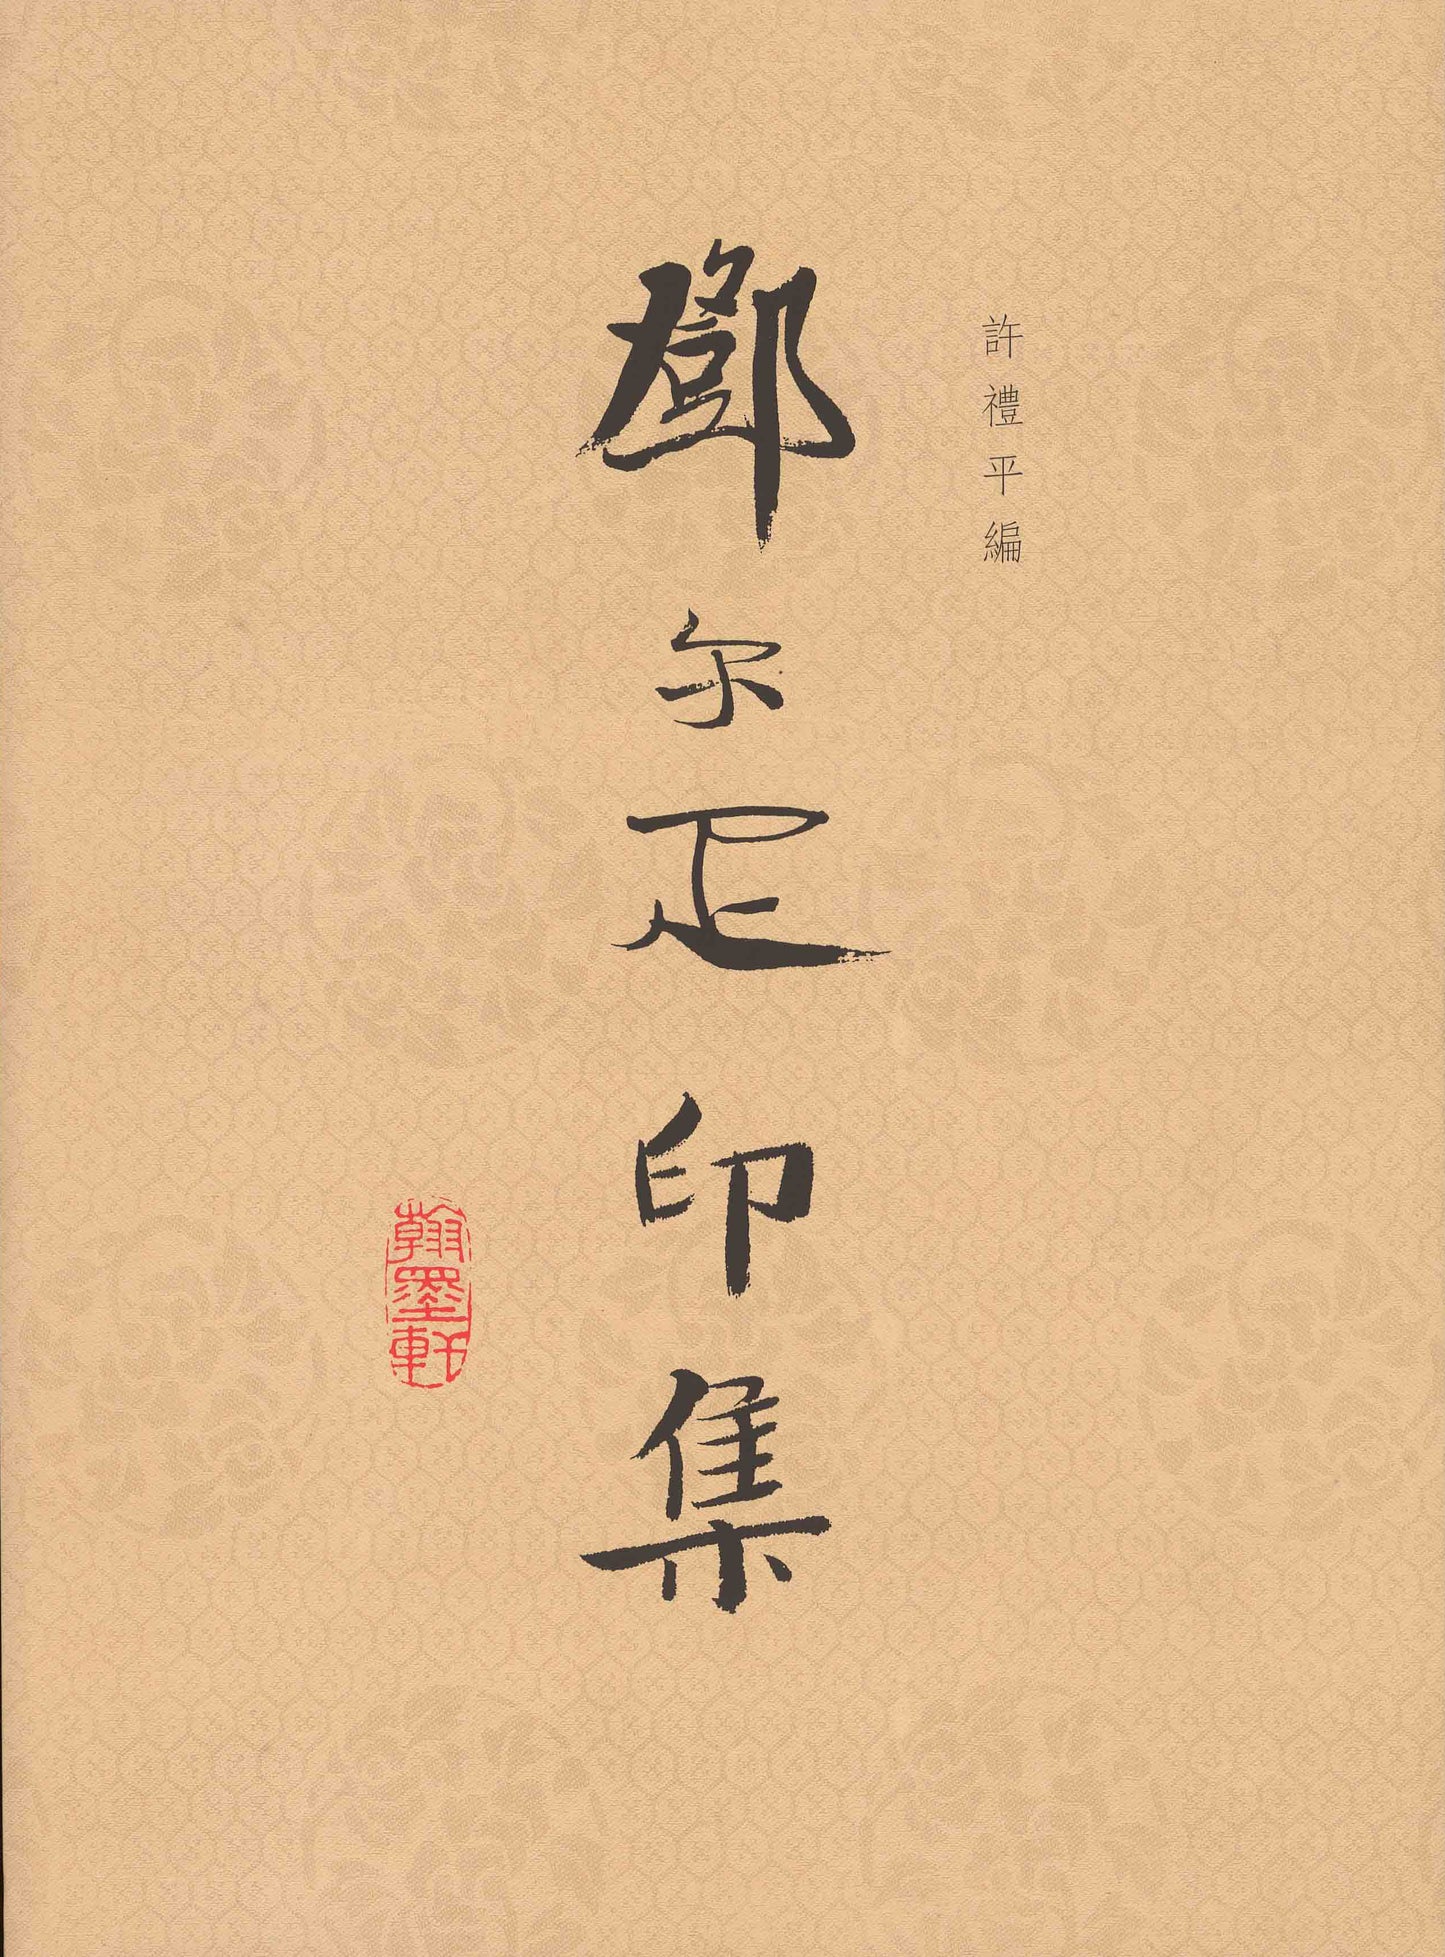 許禮平編
鄧尔疋印集
翰墨軒